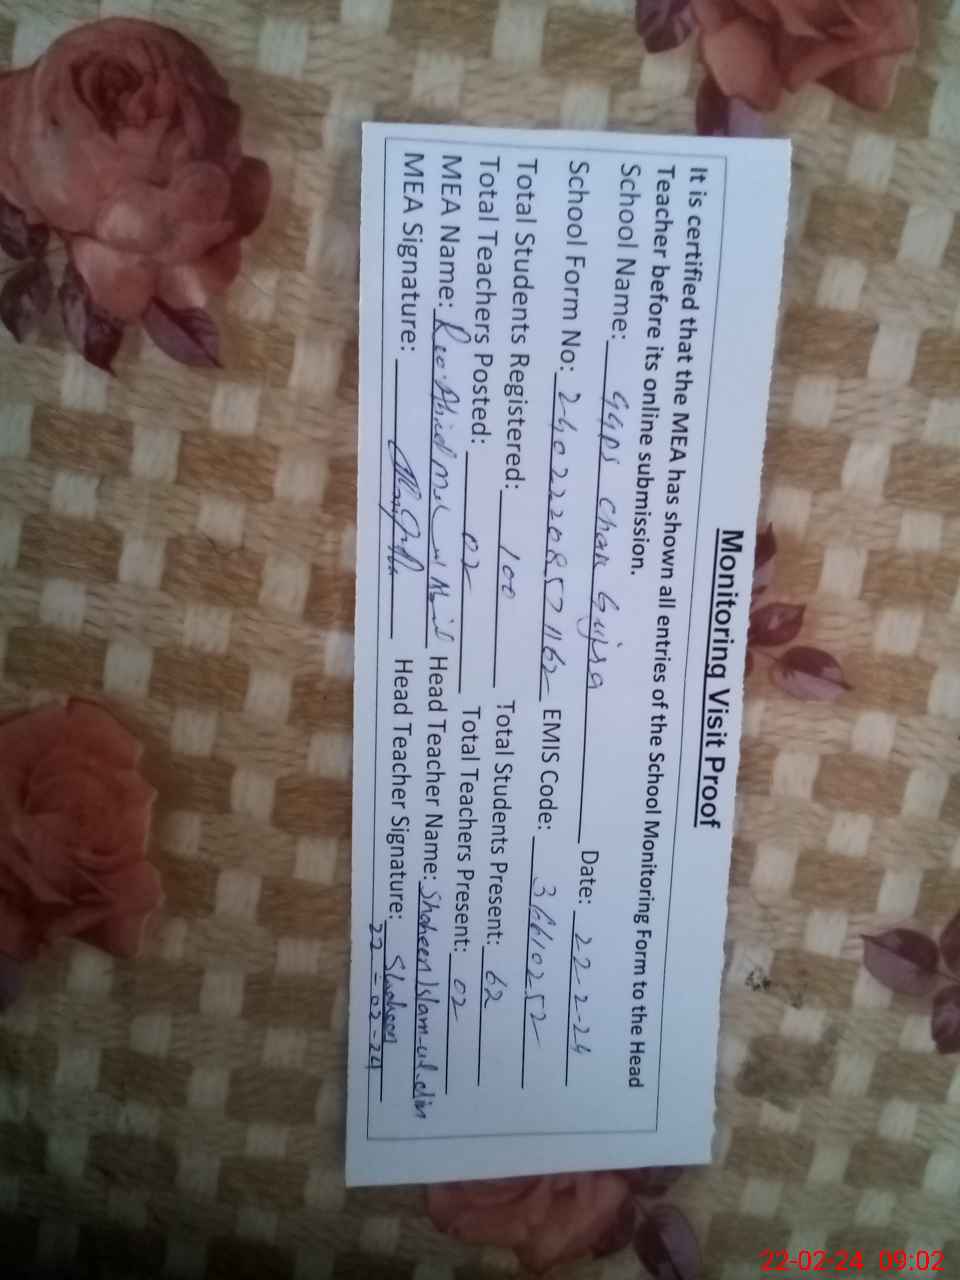 Monitoring Visit Proof
It is certified that the MEA has shown all entries of the School Monitoring Form to the Head
Teacher before its online submission.
School Name: GGPS Chak Gujra Date: 22-2-24
School Form No: EMIS Code: 36610252
Total Students Registered: 100 Total Students Present: 62
Total Teachers Posted: 02 Total Teachers Present: 02
MEA Name: Head Teacher Name: Shaheen Islam-ul-din
MEA Signature: Head Teacher Signature: Shaheen
22-02-24
22-02-24 09:02